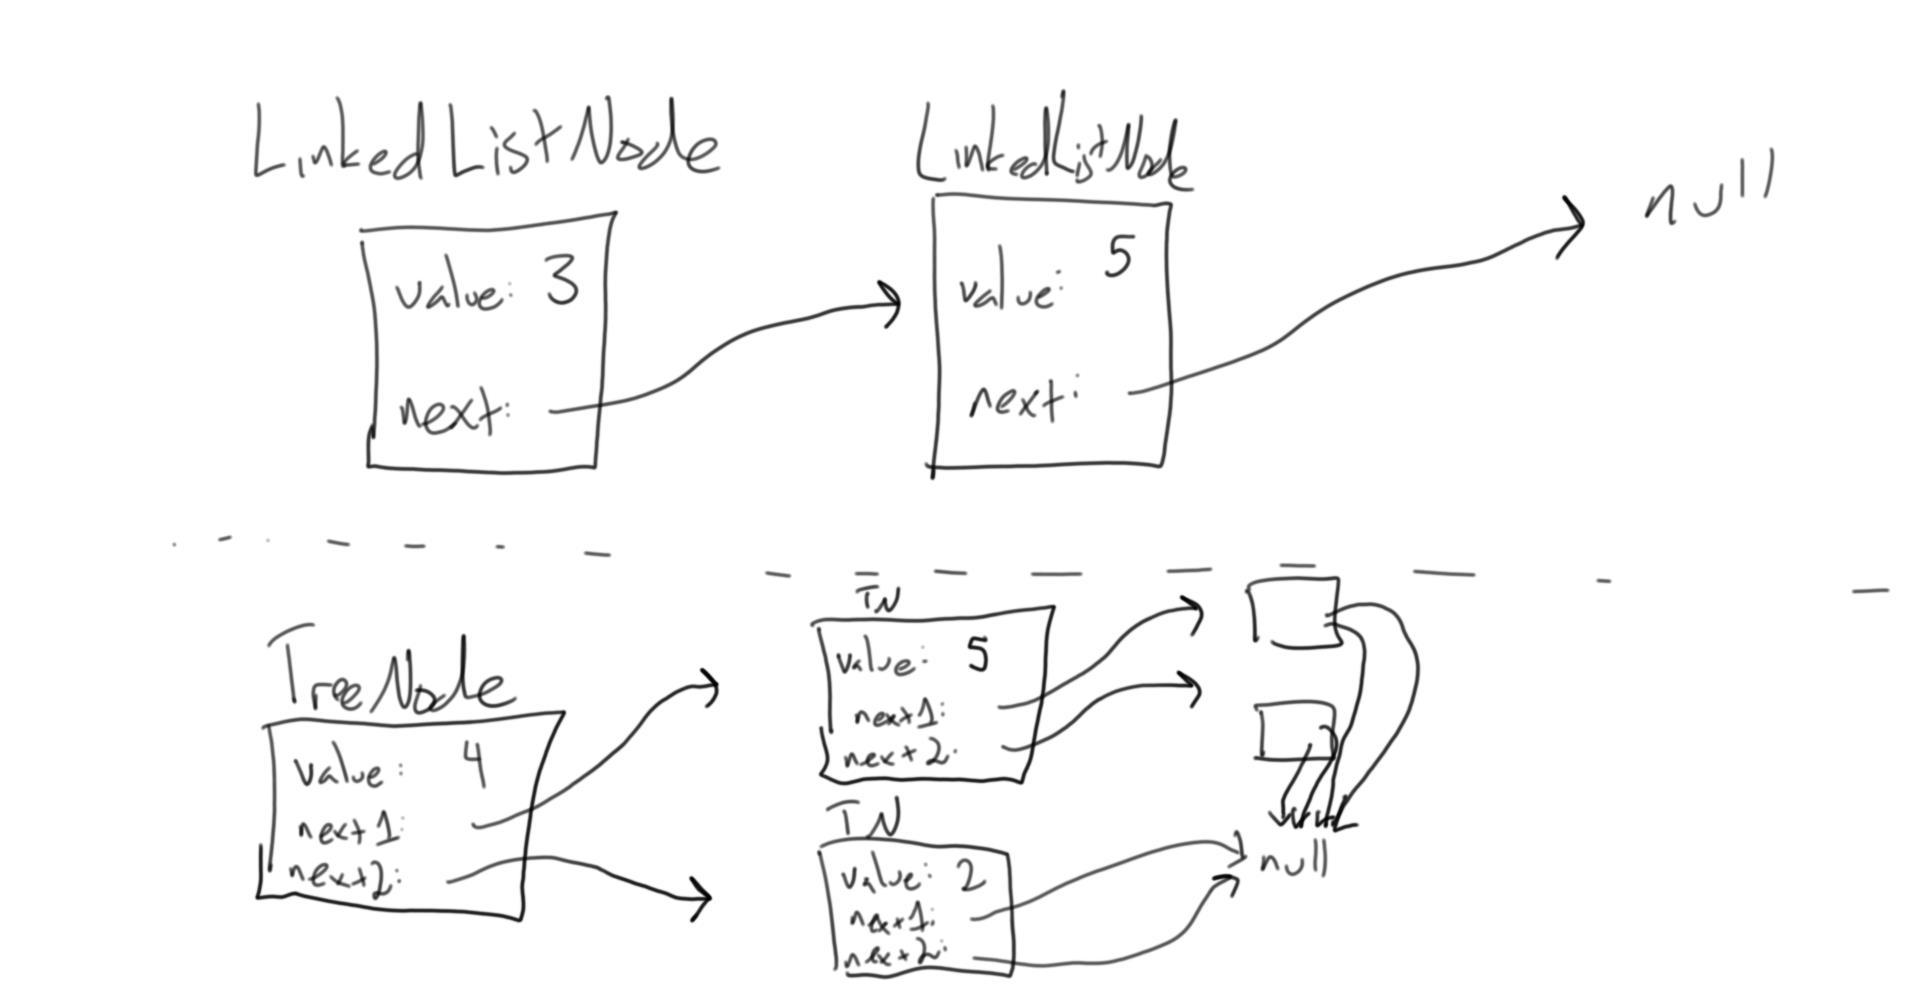 LinkedListNode
value: 3
next:
LinkedListNode
value: 5
next:
null
TreeNode
value: 4
next1:
next2:
TN
value: 5
next1:
next2:
TN
value: 2
next1:
next2:
null